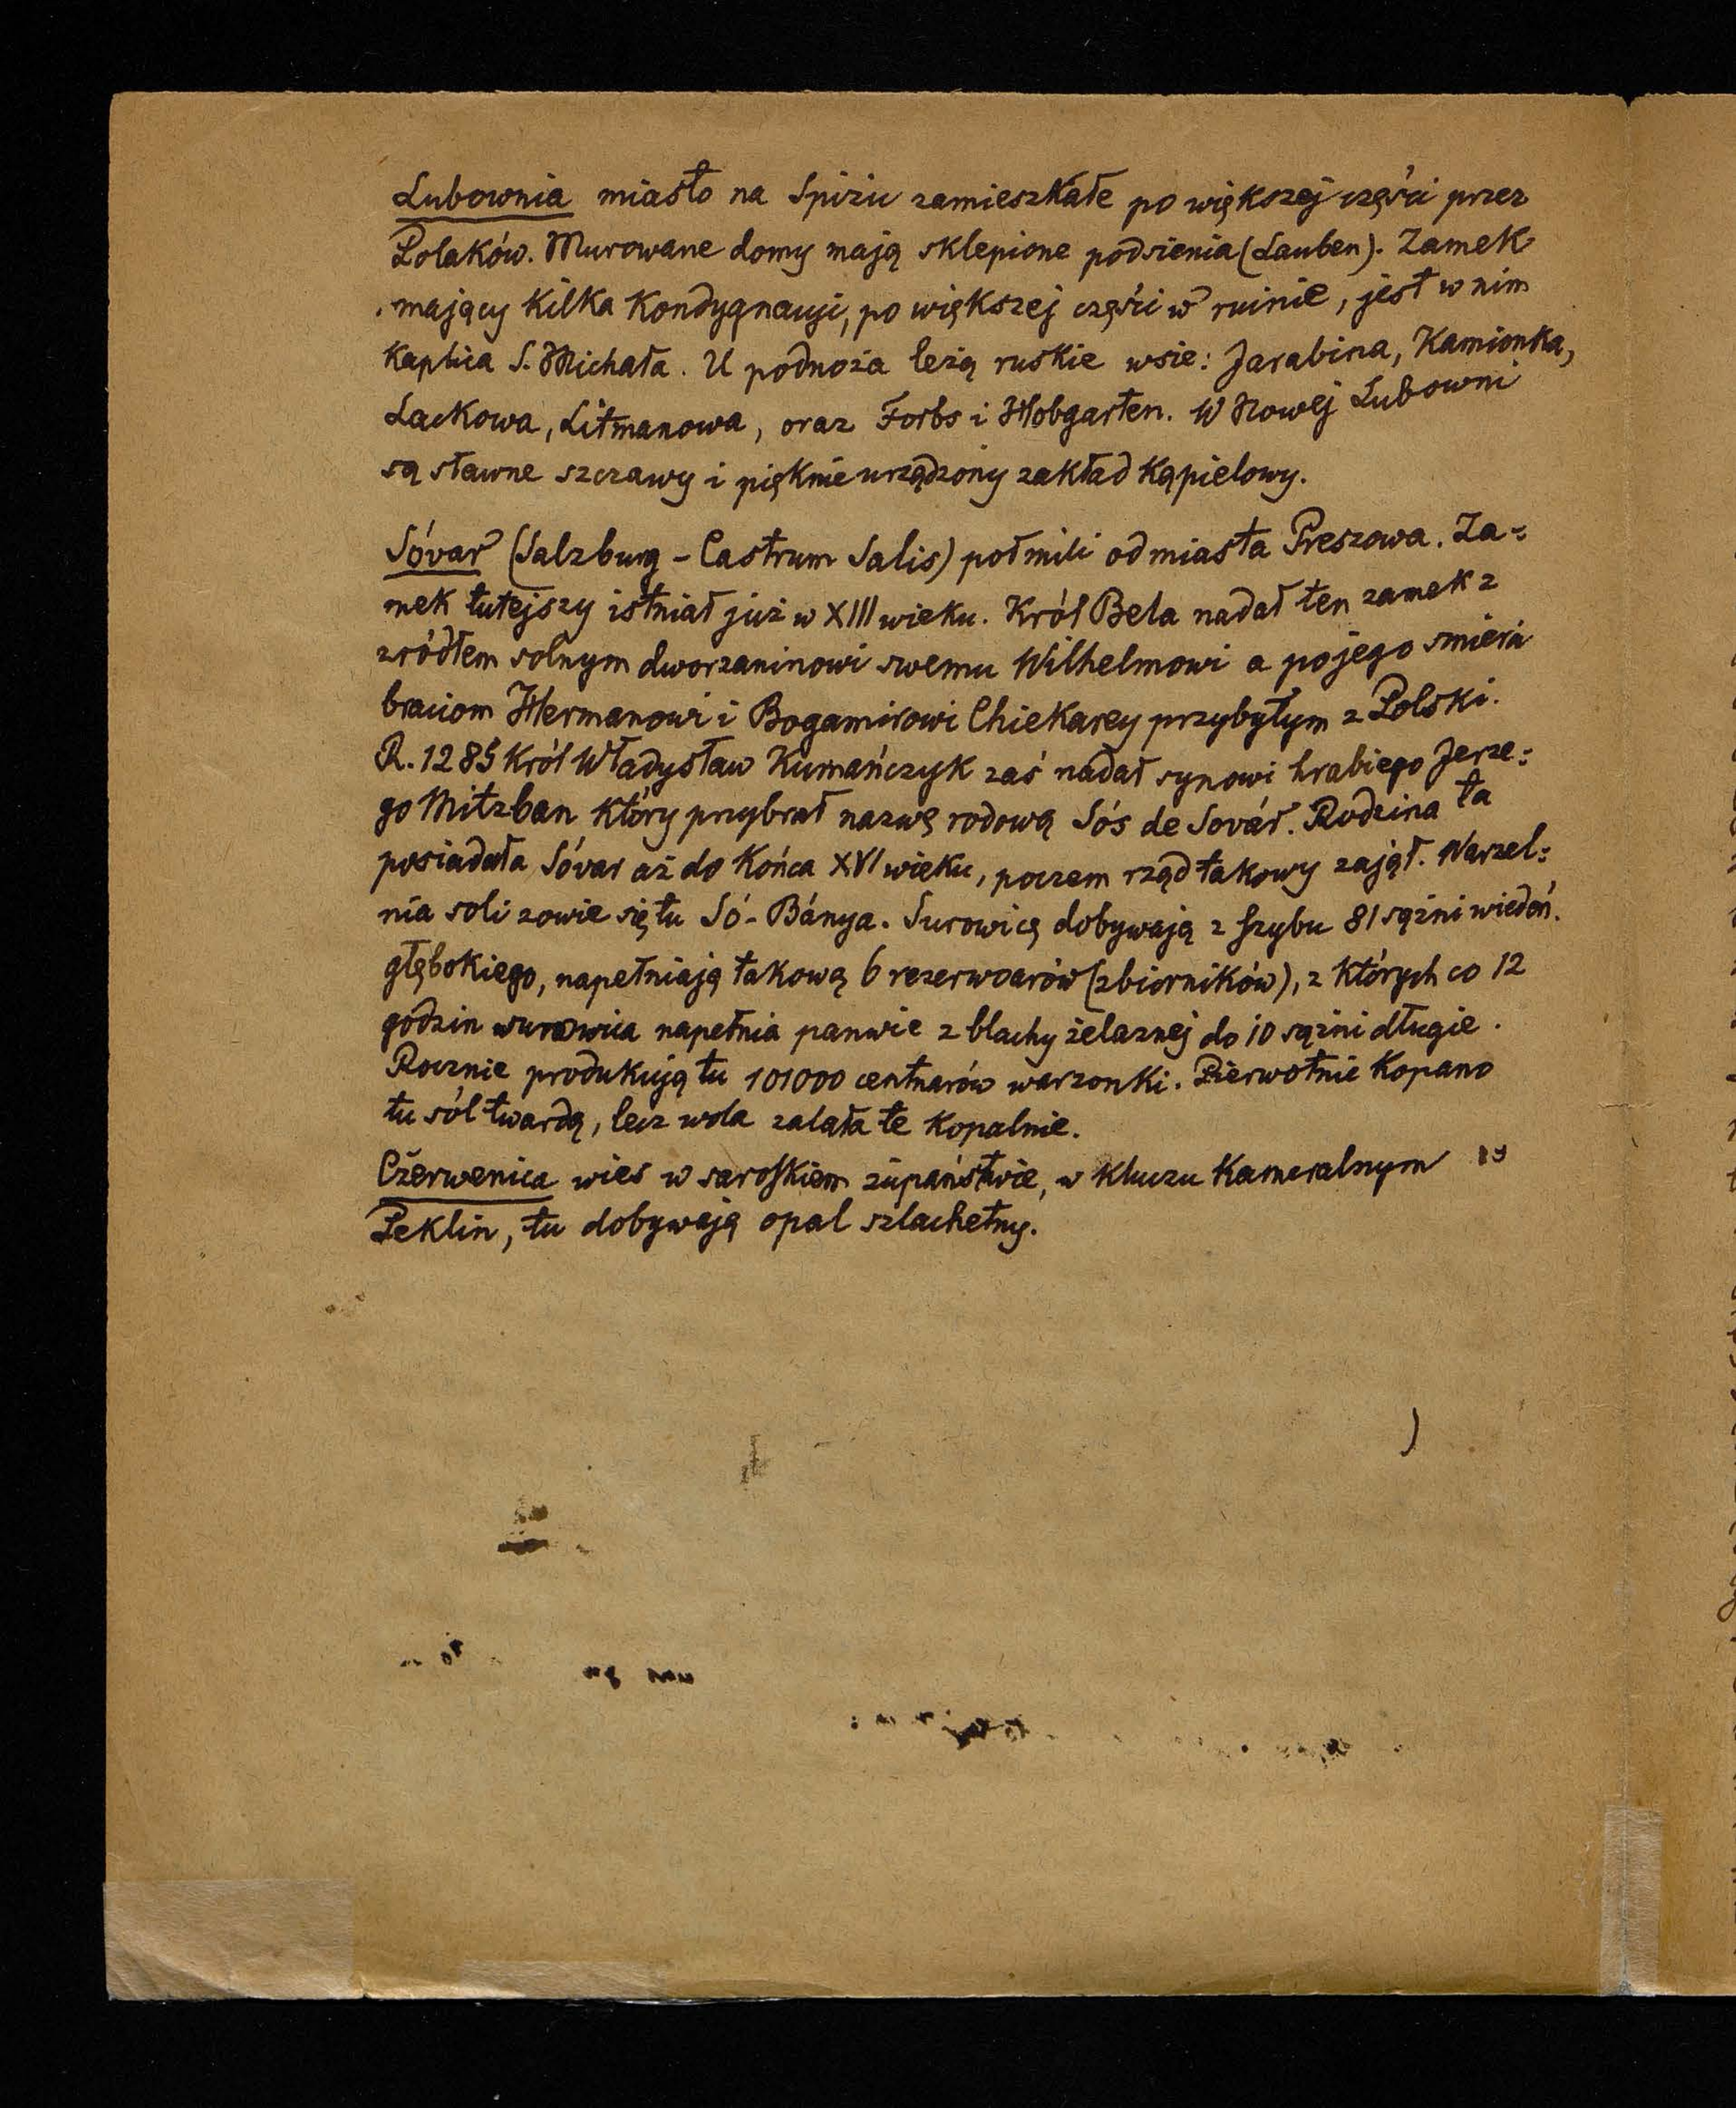 Lubownia miasto na Spiżu zamieszkałe po większej części przez
Polaków. Murowane domy mają sklepione podsienia (Lauben). Zamek
mający kilka kondygnacyi, po większej części w ruinie, jest w nim
kaplica S. Michała. U podnoża leżą ruskie wsie: Jarabina, Kamionka,
Lackowa, Litmanowa, oraz Forbs i Hobgarten. W Nowej Lubowni
są sławne szczawy i pięknie urządzony zakład kąpielowy.
Sóvar (Salzburg - Castrum Salis) poł mili od miasta Preszowa. Za=
mek tutejszy istniał już w XIII wieku. Król Bela nadał ten zamek z
zródłem solnym dworzaninowi swemu Wilhelmowi a po jego smierci
braciom Hermanowi i Bogamirowi Chiekarey przybyłym z Polski.
R. 1285 Król Władysław Kumańczyk zaś nadał synowi hrabiego Jerze=
go Mitzban który przybrał nazwę rodową Sós de Sovár. Rodzina ta
posiadała Sóvar aż do końca XVI wieku, poczem rząd takowy zajął. Warzel=
nia soli zowie się tu Só-Bánya. Surowicę dobywają z szybu 81 sążni wiedeń.
głębokiego, napełniają takową 6 rezerwoarów (zbiorników), z których co 12
godzin surowica napełnia panwie z blachy żelaznej do 10 sążni długie.
Rocznie produkują tu 101000 centnarów warzonki. Pierwotnie kopano
tu sól twardą, lecz woda zalała te kopalnie.
Czerwenica wies w saroskiem żupaństwie, w kluczu kameralnym
Peklin, tu dobywają opal szlachetny.